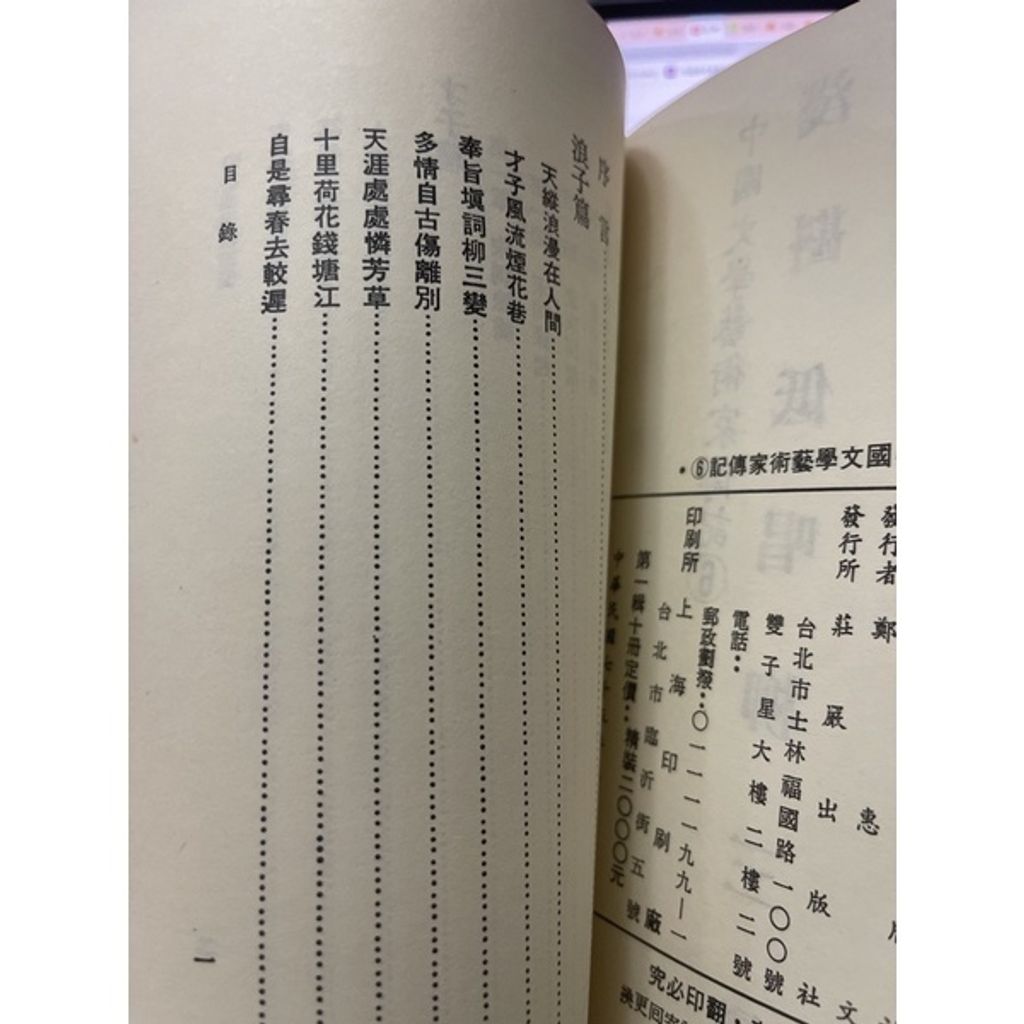 國文學藝術家傳記⑥
發行者 鄭 惠
發行所 莊嚴出版社
台北市士林福國路一〇〇號
雙子星大樓二樓二號
電話：
郵政劃撥：〇一一一一九九一一
印刷所 上海印刷廠
台北市臨沂街五號
第一輯十冊定價：精裝二〇〇〇元
中華民國七十
翻印必究
序言
浪子篇
天縱浪漫在人間
才子風流煙花巷
奉旨塡詞柳三變
多情自古傷離別
天涯處處憐芳草
十里荷花錢塘江
自是尋春去較遲
目錄
一